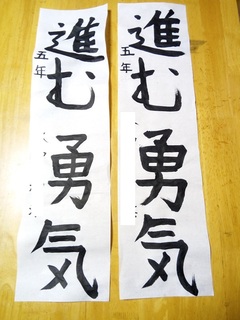 進む勇気
五年
進む勇気
五年